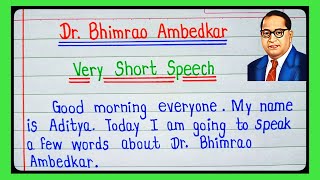 Dr. Bhimrao Ambedkar
Very Short Speech
Good morning everyone. My name
is Aditya. Today I am going to speak
a few words about Dr. Bhimrao
Ambedkar.